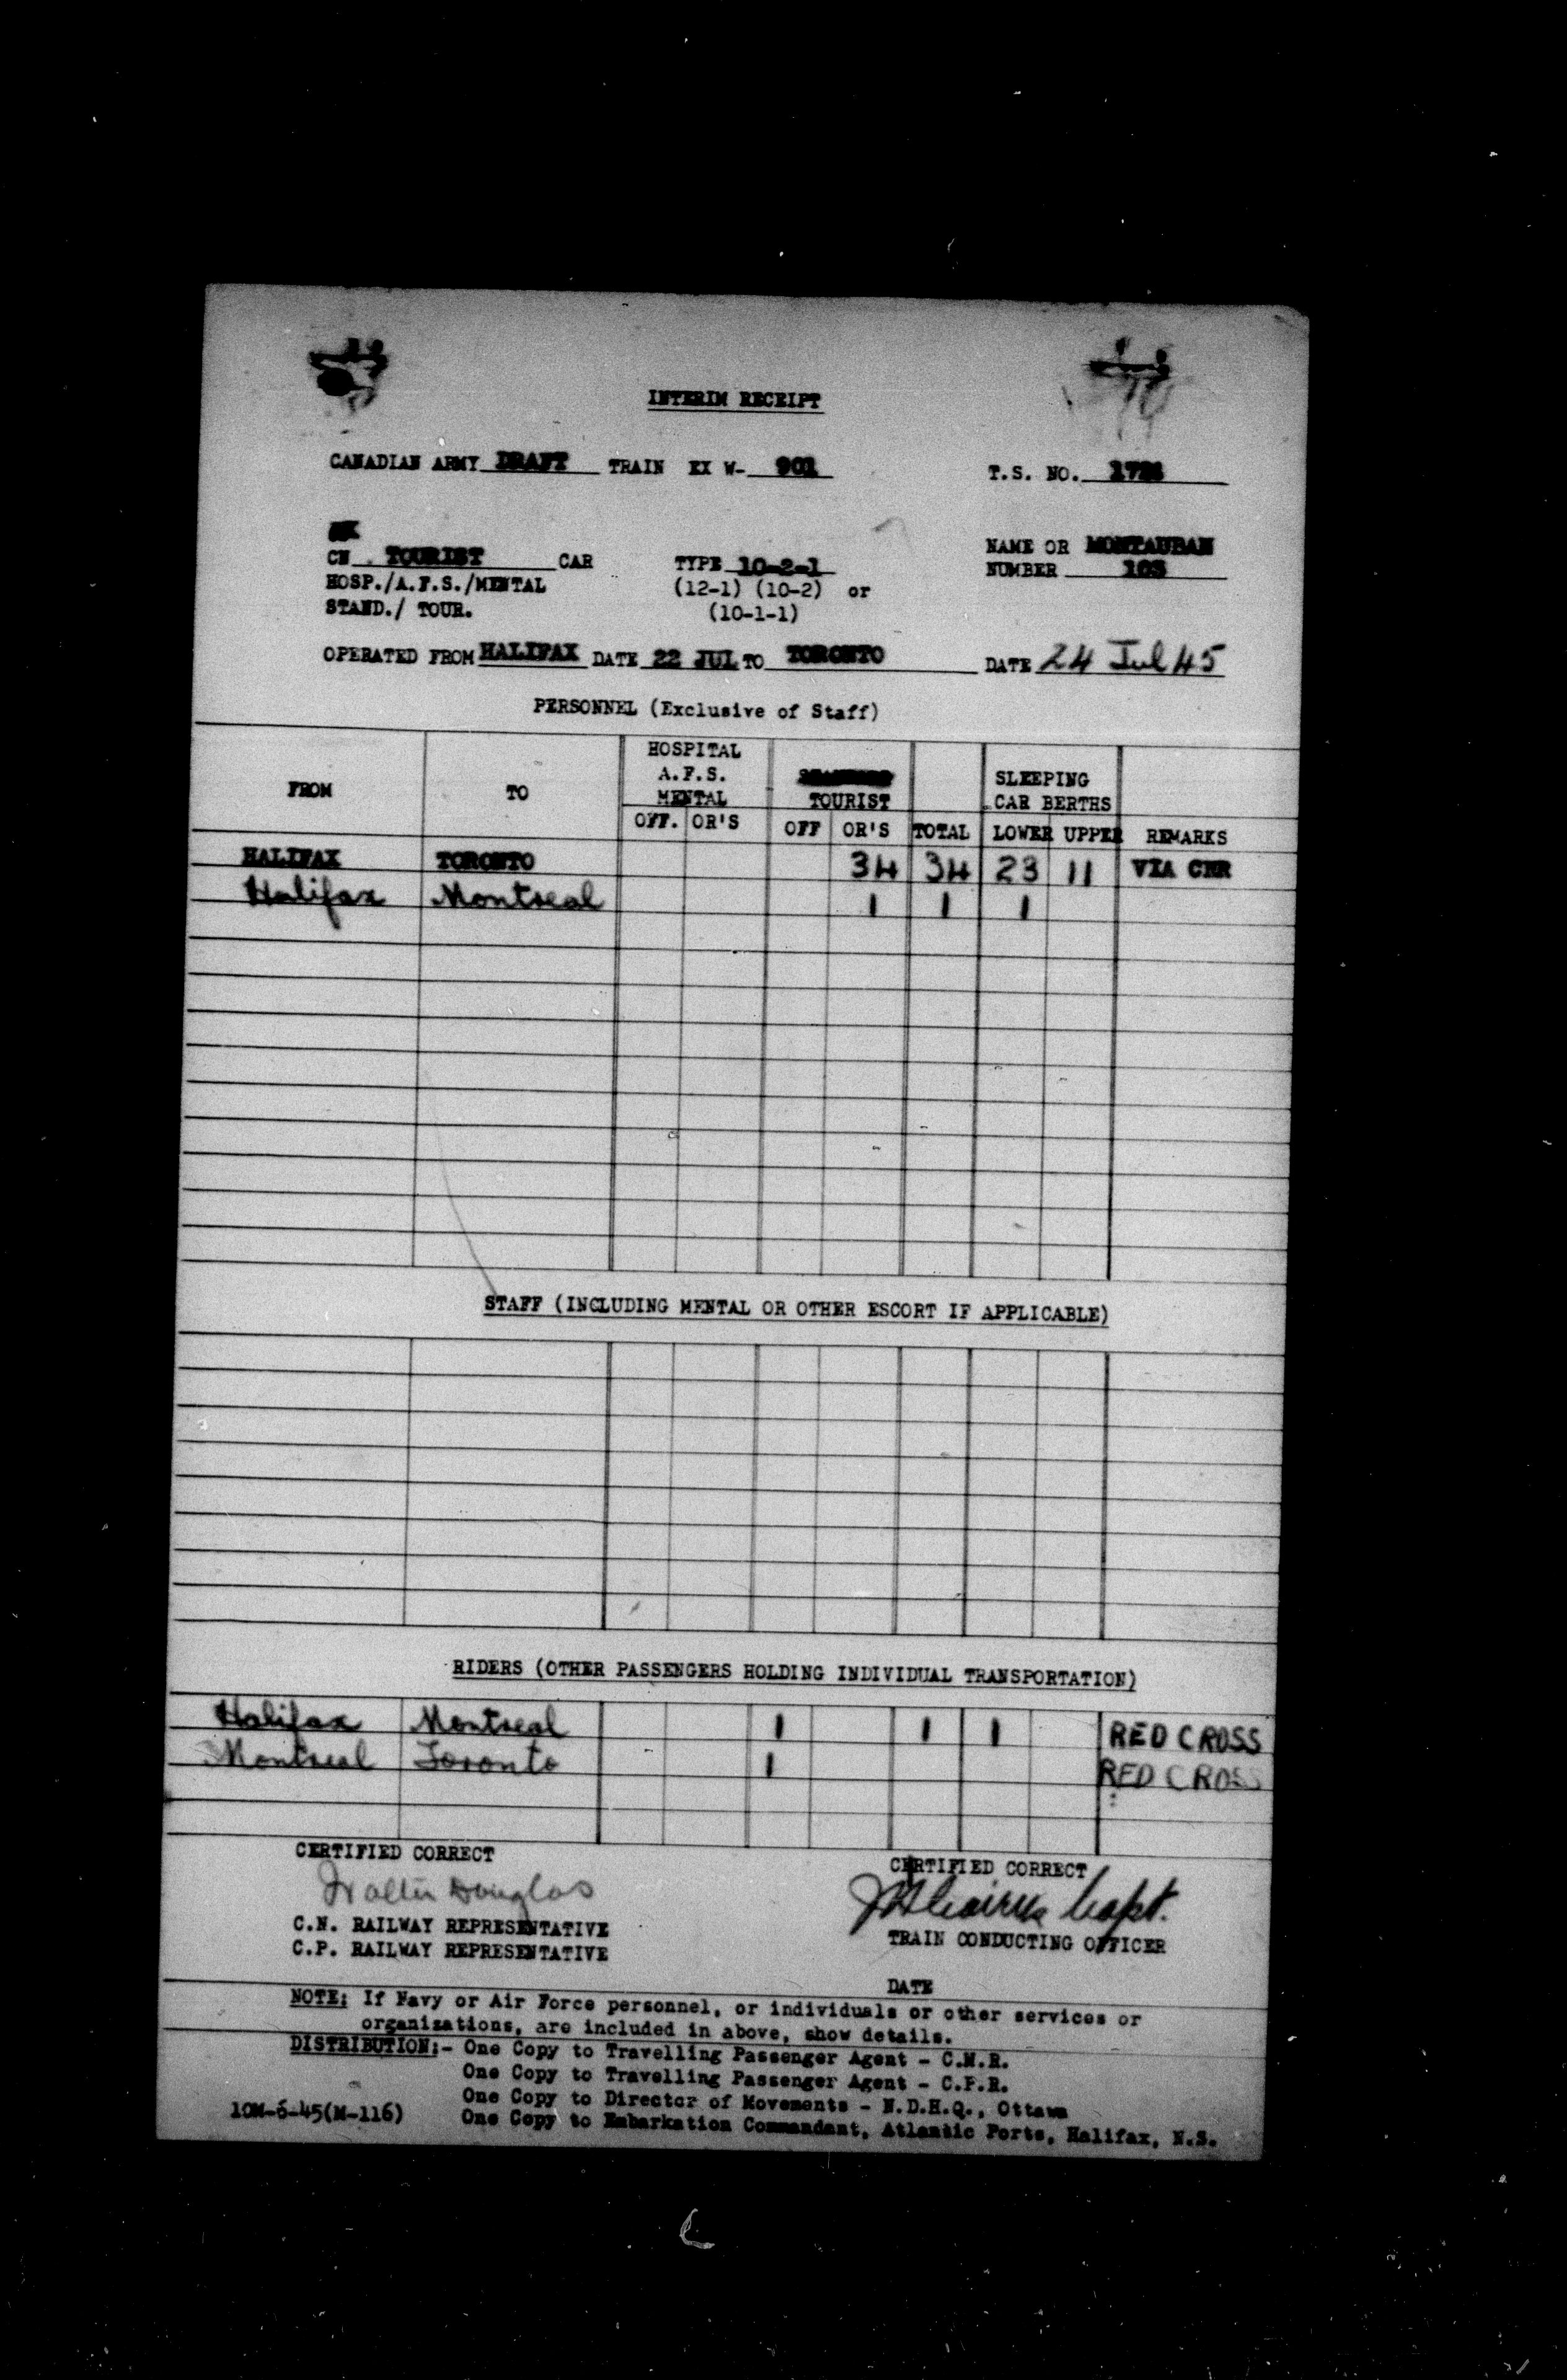 INTERIM RECEIPT
CANADIAN ARMY DRAFT TRAIN EX W- 901 T.S. NO.
CN . TOURIST CAR TYPE 10-2-1 NAME OR MONTAUBAN
HOSP./A.F.S./MENTAL (12-1) (10-2) or NUMBER 103
STAND./ TOUR. (10-1-1)
OPERATED FROM HALIFAX DATE 22 JUL TO TORONTO DATE 24 Jul 45
PERSONNEL (Exclusive of Staff)
FROM TO HOSPITAL A.F.S. MENTAL TOURIST SLEEPING CAR BERTHS
OFF. OR'S OFF OR'S TOTAL LOWER UPPER REMARKS
HALIFAX TORONTO 34 34 23 11 VIA CNR
Halifax Montreal 1 1 1
STAFF (INCLUDING MENTAL OR OTHER ESCORT IF APPLICABLE)
RIDERS (OTHER PASSENGERS HOLDING INDIVIDUAL TRANSPORTATION)
Halifax Montreal 1 1 1 RED CROSS
Montreal Toronto 1 RED CROSS
CERTIFIED CORRECT CERTIFIED CORRECT
Walter Douglas Capt.
C.N. RAILWAY REPRESENTATIVE TRAIN CONDUCTING OFFICER
C.P. RAILWAY REPRESENTATIVE
DATE
NOTE: If Navy or Air Force personnel, or individuals or other services or
organizations, are included in above, show details.
DISTRIBUTION:- One Copy to Travelling Passenger Agent - C.N.R.
One Copy to Travelling Passenger Agent - C.P.R.
One Copy to Director of Movements - N.D.H.Q., Ottawa
10M-6-45(M-116) One Copy to Embarkation Commandant, Atlantic Ports, Halifax, N.S.